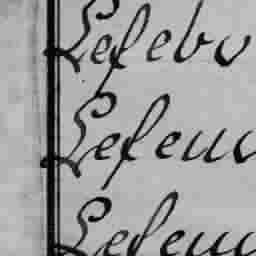 Lefebv
Lefeuv
Lefeuv